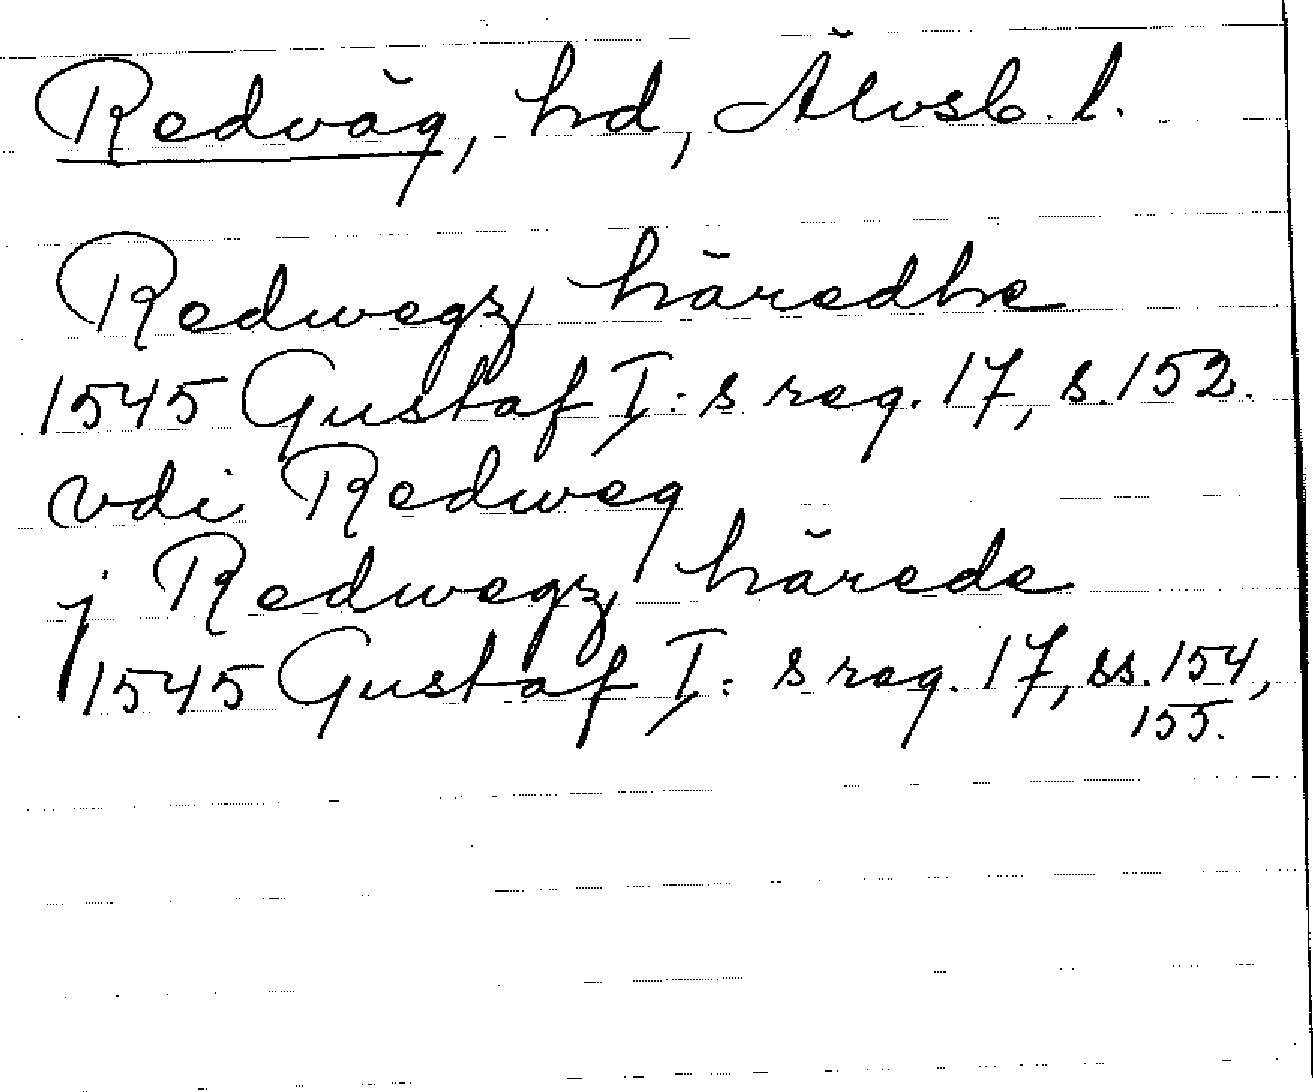 Redväg, hd, Älvsb. l.
Redwegz häredhe
1545 Gustaf I: s reg. 17, s. 152.
vdi Redweg
j Redwegz härede
1545 Gustaf I: s reg. 17, ss. 154,
155.